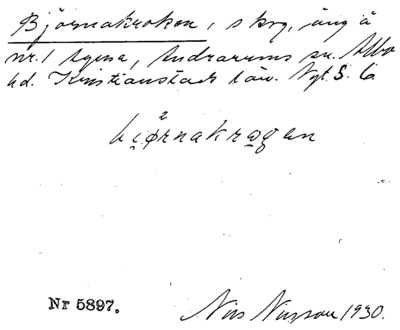 Björnakroken, skog, äng å
nr. 1 Agusa, Andrarums sn. Albo
hd. Kristianstads län. Vgt. S. 6
Nr 5897.
Nils Nilsson 1930.